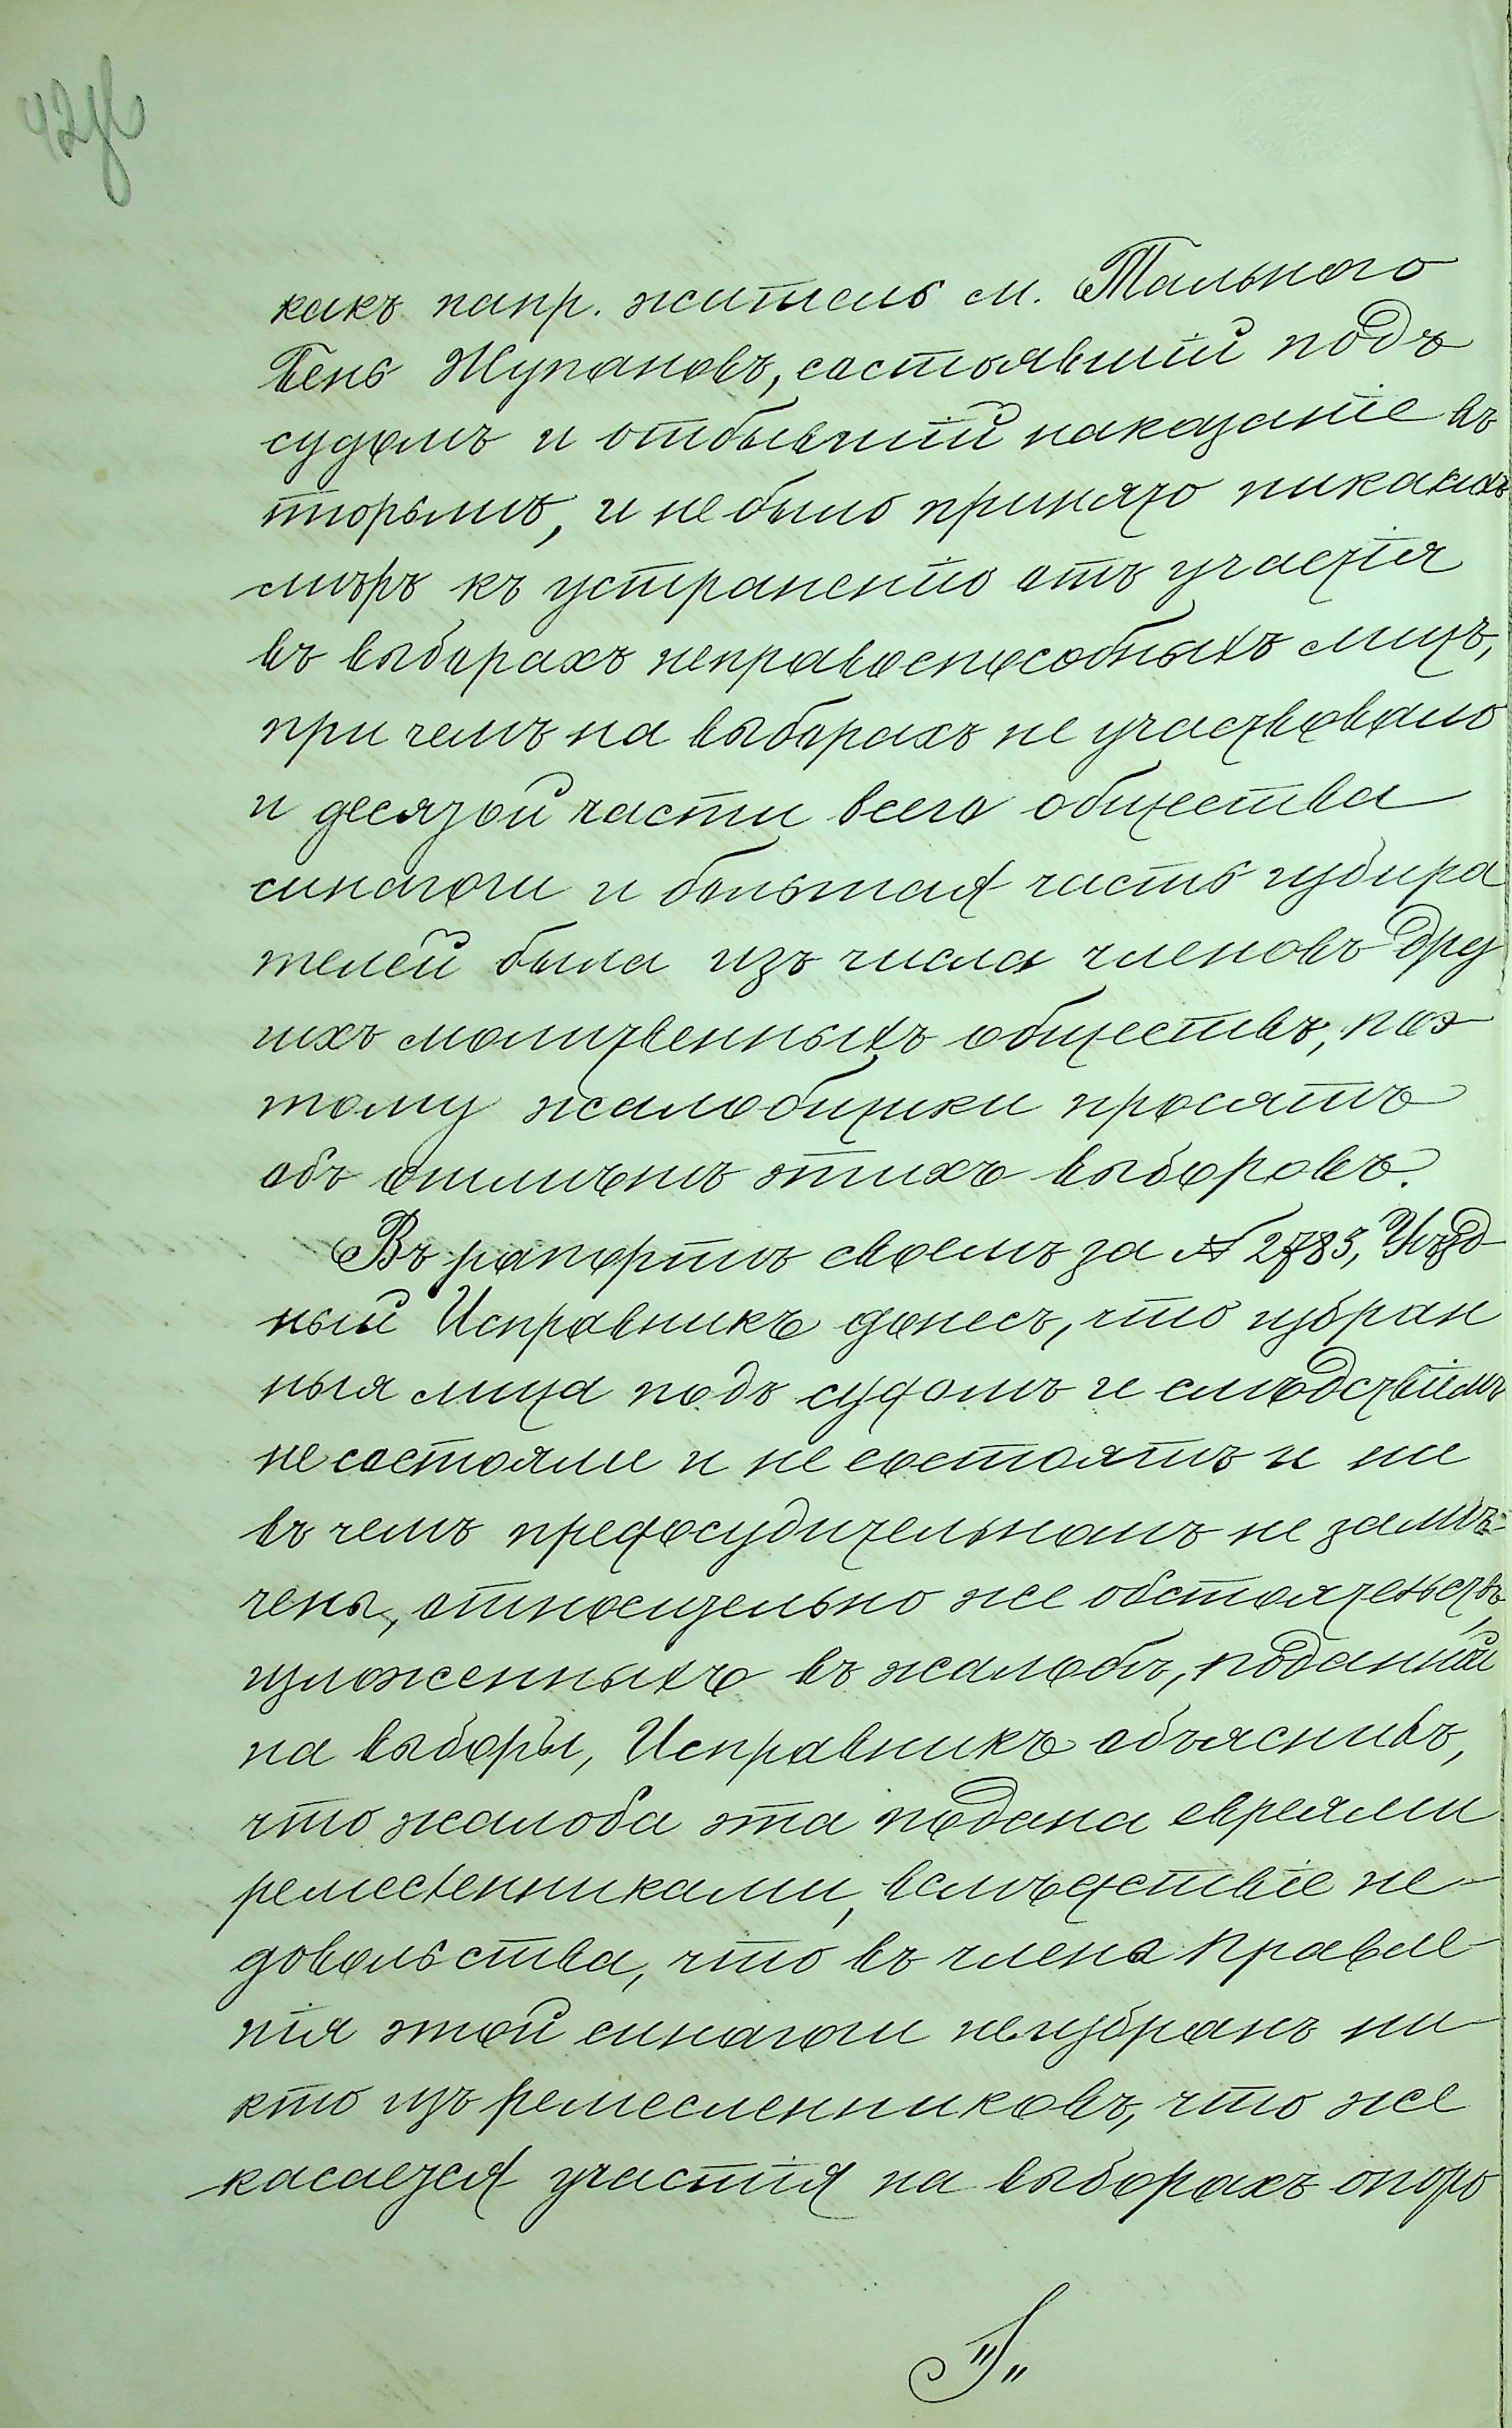 какъ напр. житель м. Тального
Бень Жупановъ, состоявшій подъ
судомъ и отбывшій наказаніе въ
тюрьмѣ, и не было принято никакихъ
мѣръ къ устраненію отъ участія
въ выборахъ неправоспособныхъ лицъ,
при чемъ на выборахъ не участвовало
и десятой части всего общества
синагоги и большая часть избира
телей была изъ числа членовъ дру
гихъ молитвенныхъ обществъ, поэ
тому жалобщики просятъ
объ отмѣнѣ этихъ выборовъ.
Въ рапортѣ своемъ за № 2783, Уѣзд-
ный Исправникъ донесъ, что избран
ныя лица подъ судомъ и слѣдствіемъ
не состояли и не состоятъ и ни
въ чемъ предосудительномъ не замѣ-
чены, относительно же обстоятельствъ,
изложенныхъ въ жалобѣ, поданной
на выборы, Исправникъ объяснилъ,
что жалоба эта подана евреями
ремесленниками, вслѣдствіе не-
довольства, что въ члены правле-
нія этой синагоги не избранъ ни-
кто изъ ремесленниковъ, что же
касается участія на выборахъ опоро